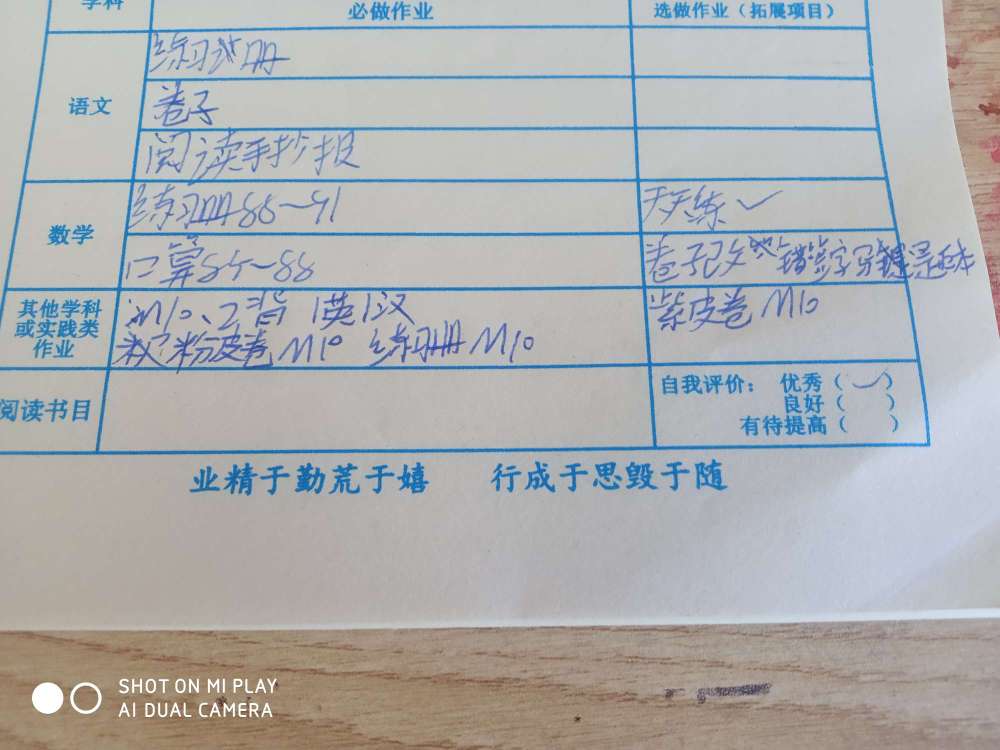 学科 必做作业 选做作业（拓展项目）
语文
练习册
卷子
阅读手抄报
数学
练习册88-91 天天练✓
口算85-88 卷子改
其他学科
或实践类
作业
M10、2背 1英1汉
粉皮卷M10 练习册M10
紫皮卷M10
阅读书目
自我评价： 优秀（✓）
良好（ ）
有待提高（ ）
业精于勤荒于嬉 行成于思毁于随
SHOT ON MI PLAY
AI DUAL CAMERA